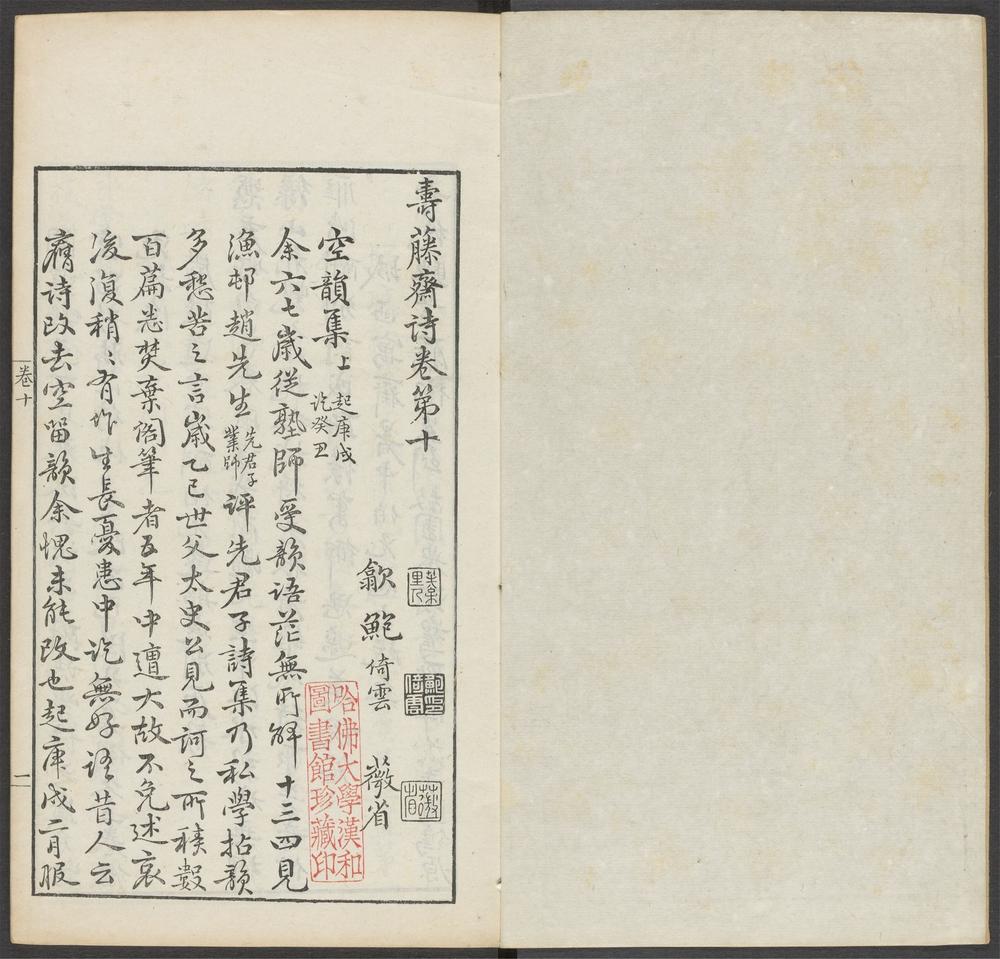 壽藤齋詩卷第十
歙 鮑 倚雲 薇省
空韻集上 起庚戌
訖癸丑
余六七歲從塾師受韻語茫無所解十三四見
漁邨趙先生 先君子
業師 評先君子詩集乃私學拈韻
多愁苦之言歲乙巳世父太史公見而訶之所積數
百篇悉焚棄閣筆者五年中遭大故不免述哀
後復稍〻有作生長憂患中訖無好語昔人云
舊詩改去空留韻余愧未能改也起庚戌二月服
卷十
一
哈佛大學漢和
圖書館珍藏印
鮑印
倚雲
薇省